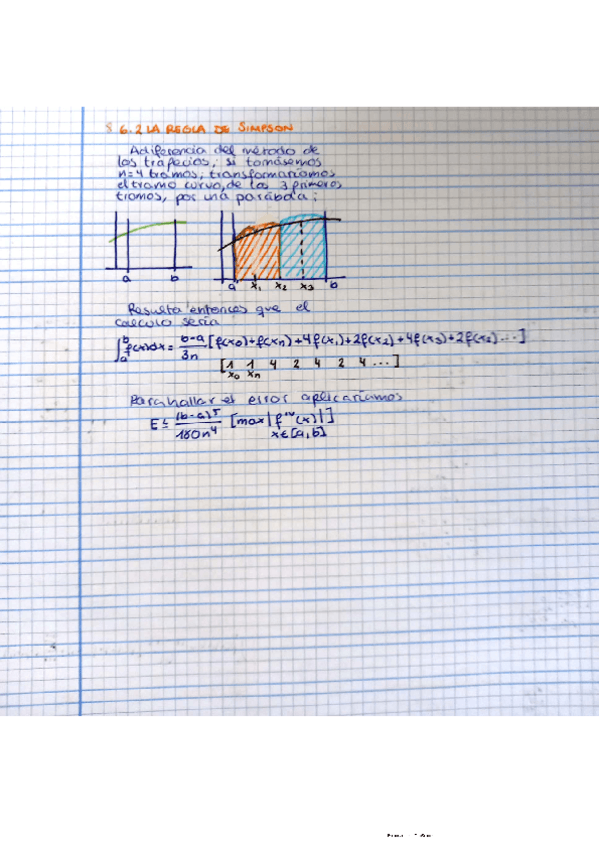 § 6.2 LA REGLA DE SIMPSON
A diferencia del método de
los trapecios, si tomásemos
n=4 tramos, transformaríamos
el tramo curvo, de los 3 primeros
tramos, por una parábola:
a b
a x₁ x₂ x₃ b
Resulta entonces que el
calculo sería
∫ₐᵇ f(x)dx = (b-a)/3n [f(x₀)+f(xₙ)+4f(x₁)+2f(x₂)+4f(x₃)+2f(x₂)...]
[1 1 4 2 4 2 4 ...]
x₀ xₙ
Para hallar el error aplicaríamos
E ≤ (b-a)⁵/180n⁴ [max |fᴵⱽ(x)|]
x∈[a,b]